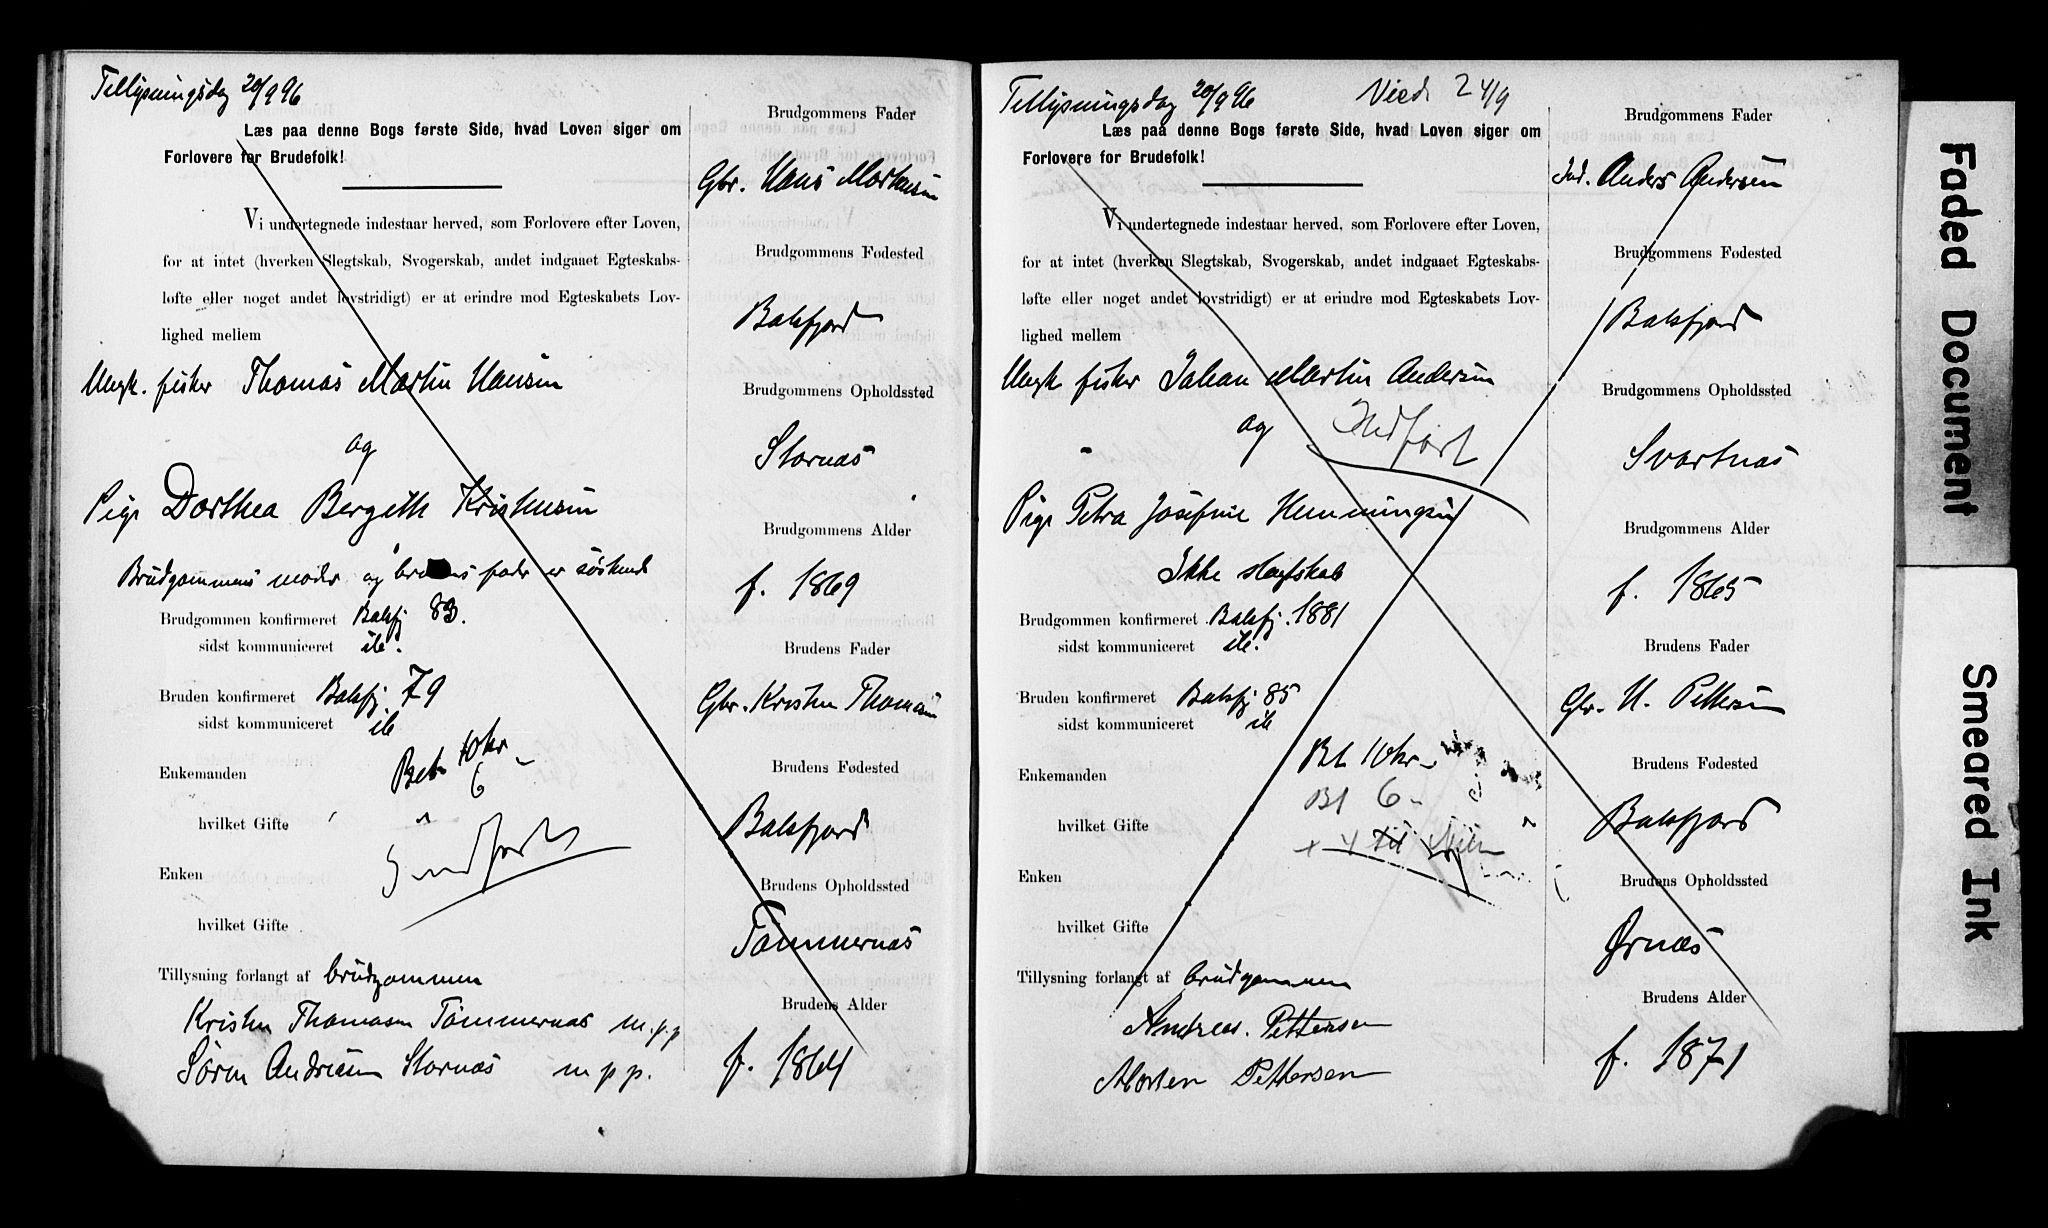 Tillysningsdag 20/9 96
Læs paa denne Bogs første Side, hvad Loven siger om
Forlovere for Brudefolk!
Vi undertegnede indestaar herved, som Forlovere efter Loven,
for at intet (hverken Slegtskab, Svogerskab, andet indgaaet Egteskabs-
løfte eller noget andet lovstridigt) er at erindre mod Egteskabets Lov-
lighed mellem
Ungk. fisker Thomas Martin Hansen
og
Pige Dorthea Bergith Kristensen
Brudgommens moder og brudens fader er søskende
Brudgommen konfirmeret Balsfj. 83.
sidst kommuniceret ib.
Bruden konfirmeret Balsfj. 79
sidst kommuniceret ib
Enkemanden
Bet. 10 kr
6
hvilket Gifte
Indført
Enken
hvilket Gifte
Tillysning forlangt af brudgommen
Kristen Thomasen Tømmernæs m.p.p
Søren Andreasen Stornæs m p p.
Brudgommens Fader
Gbr. Hans Mortensen
Brudgommens Fødested
Balsfjord
Brudgommens Opholdssted
Stornæs
Brudgommens Alder
f. 1869
Brudens Fader
Gbr. Kristen Thomasen
Brudens Fødested
Balsfjord
Brudens Opholdssted
Tømmernæs
Brudens Alder
f. 1864
Tillysningsdag 20/9 96 Viede 24/9
Læs paa denne Bogs første Side, hvad Loven siger om
Forlovere for Brudefolk!
Vi undertegnede indestaar herved, som Forlovere efter Loven,
for at intet (hverken Slegtskab, Svogerskab, andet indgaaet Egteskabs-
løfte eller noget andet lovstridigt) er at erindre mod Egteskabets Lov-
lighed mellem
Ungk fisker Johan Martin Andersen
og Indført
Pige Petra Josefine Hemmingsen
Ikke slegtskab
Brudgommen konfirmeret Balsfj. 1881
sidst kommuniceret ib.
Bruden konfirmeret Balsfj 85
sidst kommuniceret ib
Bt 10 kr
Enkemanden
Bt 6
hvilket Gifte
+ 4 til
Enken
hvilket Gifte
Tillysning forlangt af brudgommen
Andreas. Pettersen
Morten Pettersen
Brudgommens Fader
Ind. Anders Andersen
Brudgommens Fødested
Balsfjord
Brudgommens Opholdssted
Svartnæs
Brudgommens Alder
f. 1865
Brudens Fader
Gbr. H. Pettersen
Brudens Fødested
Balsfjord
Brudens Opholdssted
Ørnæs
Brudens Alder
f. 1871
Faded Document
Smeared Ink